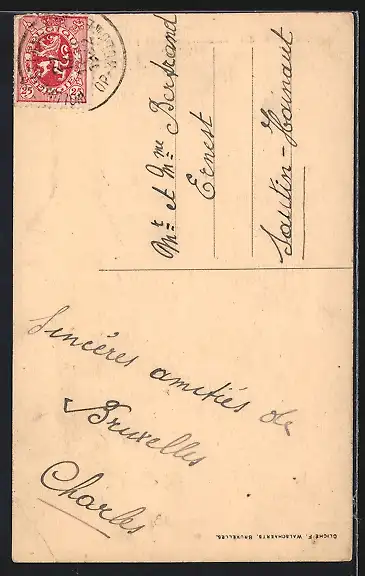 BELGIQUE
25 25
Mr et Mme Bertrand
Ernest
Sautin-Hainaut
Sincères amitiés de
Bruxelles
Charles
CLICHÉ F. WALSCHAERTS, BRUXELLES.